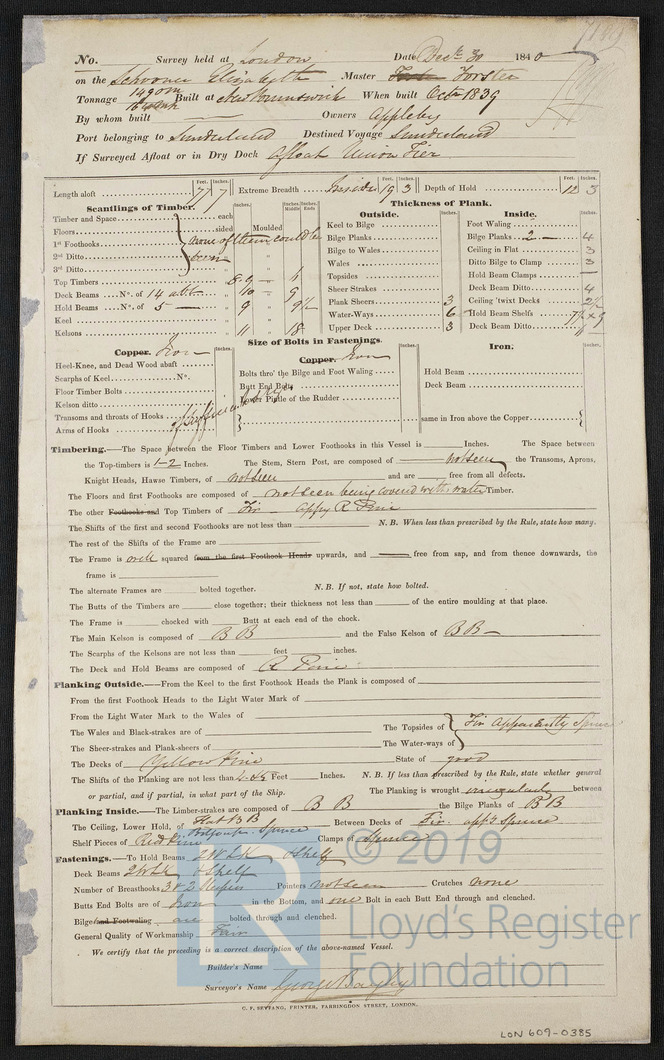 No. Survey held at London Date Dec 30 1840
on the Schooner Elizabeth Master Forster
Tonnage Built at New Brunswick When built Oct 1839
By whom built — Owners Appleby
Port belonging to Sunderland Destined Voyage Sunderland
If Surveyed Afloat or in Dry Dock Afloat Union Tier
Feet. Inches. Feet. Inches. Feet. Inches.
Length aloft 77 7 Extreme Breadth Inside 19 3 Depth of Hold 12 3
Scantlings of Timber.
Inches. Inches. Middle Inches. Ends
Timber and Space each
Floors sided Moulded
1st Foothooks none of them could be
2nd Ditto seen
3rd Ditto
Top Timbers 8.9 — 6
Deck Beams No. of 14 abt 10 — 9
Hold Beams No. of 5 — 9 9½
Keel
Kelsons 11 18
Thickness of Plank.
Outside. Inches.
Keel to Bilge
Bilge Planks
Bilge to Wales
Wales
Topsides
Sheer Strakes
Plank Sheers 3
Water-Ways 6
Upper Deck 3
Inside. Inches.
Foot Waling
Bilge Planks 2 — 4
Ceiling in Flat 3
Ditto Bilge to Clamp 3
Hold Beam Clamps —
Deck Beam Ditto 4
Ceiling 'twixt Decks 2½
Hold Beam Shelfs 7½ x 9
Deck Beam Ditto
Size of Bolts in Fastenings.
Copper. Iron Inches.
Heel-Knee, and Dead Wood abaft
Scarphs of Keel No.
Floor Timber Bolts
Kelson ditto
Transoms and throats of Hooks
Arms of Hooks
of sufficient size
Copper. Iron Inches.
Bolts thro' the Bilge and Foot Waling
Butt End Bolts
Lower Pintle of the Rudder
Iron. Inches.
Hold Beam
Deck Beam
same in Iron above the Copper
Timbering.—The Space between the Floor Timbers and Lower Foothooks in this Vessel is Inches. The Space between
the Top-timbers is 1-2 Inches. The Stem, Stern Post, are composed of not seen the Transoms, Aprons,
Knight Heads, Hawse Timbers, of not seen and are free from all defects.
The Floors and first Foothooks are composed of not seen being covered with water Timber.
The other Foothooks and Top Timbers of Fir — appy R Pine
The Shifts of the first and second Foothooks are not less than N. B. When less than prescribed by the Rule, state how many.
The rest of the Shifts of the Frame are
The Frame is well squared from the first Foothook Heads upwards, and free from sap, and from thence downwards, the
frame is
The alternate Frames are bolted together. N. B. If not, state how bolted.
The Butts of the Timbers are close together; their thickness not less than of the entire moulding at that place.
The Frame is chocked with Butt at each end of the chock.
The Main Kelson is composed of B B and the False Kelson of B B
The Scarphs of the Kelsons are not less than feet inches.
The Deck and Hold Beams are composed of R Pine
Planking Outside.—From the Keel to the first Foothook Heads the Plank is composed of
From the first Foothook Heads to the Light Water Mark of
From the Light Water Mark to the Wales of
The Wales and Black-strakes are of The Topsides of Fir Apparently Spruce
The Sheer-strakes and Plank-sheers of The Water-ways of
The Decks of Yellow Pine State of good
The Shifts of the Planking are not less than Feet Inches. N. B. If less than prescribed by the Rule, state whether general
or partial, and if partial, in what part of the Ship. The Planking is wrought irregularly between
Planking Inside.—The Limber-strakes are composed of B B the Bilge Planks of B B
The Ceiling, Lower Hold, of Flat BB Spruce Between Decks of Fir app'y Spruce
Shelf Pieces of Red Pine Clamps of Spruce
Fastenings.—To Hold Beams & Shelf
Deck Beams & Shelf
Number of Breasthooks Pointers not seen Crutches none
Butts End Bolts are of Iron in the Bottom, and one Bolt in each Butt End through and clenched.
Bilge and Footwaling are bolted through and clenched.
General Quality of Workmanship Fair
We certify that the preceding is a correct description of the above-named Vessel.
Builder's Name
Surveyor's Name George Bayley
C. F. SEYFANG, PRINTER, FARRINGDON STREET, LONDON.
LON 609-0385
© 2019
Lloyd's Register
Foundation